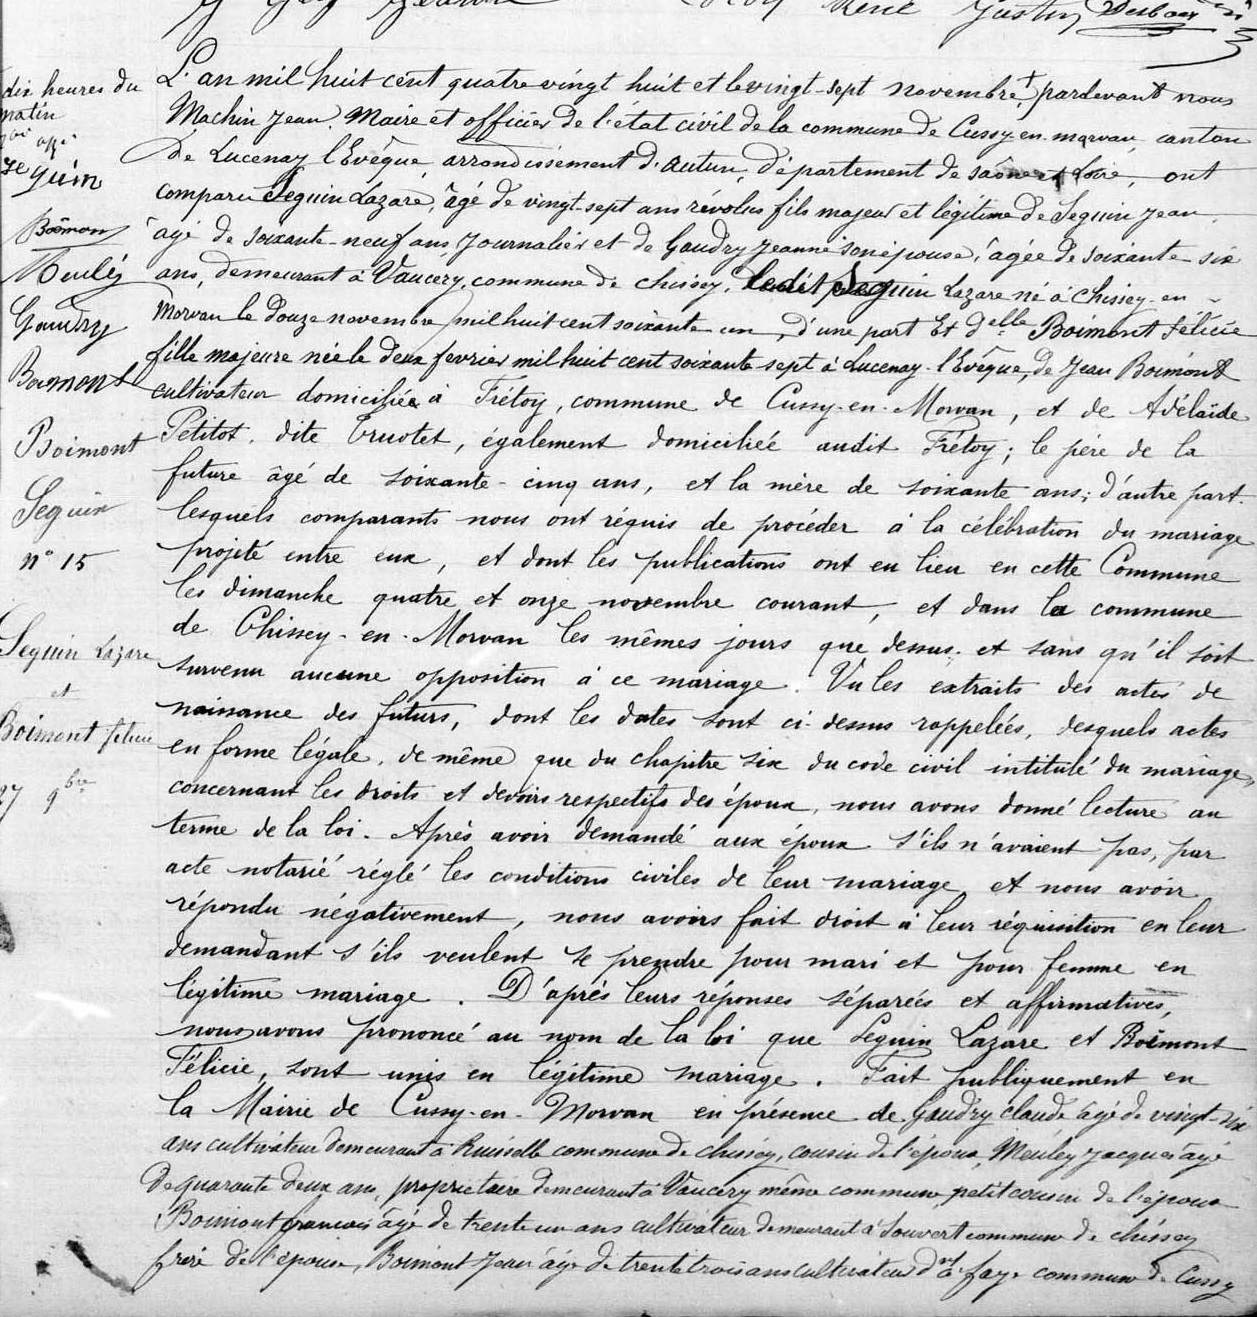 René Justin Desboex
dix heures du
matin
Seguin
Boëmon
Meuley
Gaudry
Boimont
Boimont
Seguin
n° 15
Seguin Lazare
et
Boimont félicie
27 9bre
L'an mil huit cent quatre vingt huit et le vingt-sept novembre, + pardevant nous
Machin Jean, Maire et officier de l'état civil de la commune de Cussy-en-morvan canton
de Lucenay l'Evêque, arrondissement d'autun, département de saône et Loire, ont
comparu Seguin Lazare, âgé de vingt-sept ans révolus fils majeur et légitime de Seguin Jean,
âgé de soixante-neuf ans, Journalier et de Gaudry Jeanne son épouse, âgée de soixante-six
ans, demeurant à Vaucery, commune de chissey, Ledit Seguin Lazare né à chissey-en-
Morvan le douze novembre mil huit cent soixante-un, d'une part Et Delle Boimont félicie
fille majeure née le deux fevrier mil huit cent soixante sept à Lucenay-l'Evêque, de Jean Boimont
cultivateur domiciliée à Frétoy, commune de Cussy-en-Morvan, et de Adélaïde
Petitot, dite Truotet, également domiciliée audit Frétoy; le père de la
future âgé de soixante-cinq ans, et la mère de soixante ans; d'autre part.
lesquels comparants nous ont réquis de procéder à la célébration du mariage
projeté entre eux, et dont les publications ont eu lieu en cette Commune
les dimanche quatre et onze novembre courant, et dans la commune
de Chissey-en-Morvan les mêmes jours que dessus. et sans qu'il soit
survenu aucune opposition à ce mariage. Vu les extraits des actes de
naissance des futurs, dont les dates sont ci-dessus rappelées, desquels actes
en forme légale, de même que du chapitre six du code civil intitulé du mariage,
concernant les droits et devoirs respectifs des époux, nous avons donné lecture au
terme de la loi. Après avoir demandé aux époux s'ils n'avaient pas, par
acte notarié réglé les conditions civiles de leur mariage, et nous avoir
répondu négativement, nous avons fait droit à leur réquisition en leur
demandant s'ils veulent se prendre pour mari et pour femme en
légitime mariage. D'après leurs réponses séparées et affirmatives,
nous avons prononcé au nom de la loi que Seguin Lazare et Boimont
Félicie, sont unis en légitime mariage. Fait publiquement en
la Mairie de Cussy-en-Morvan en présence de Gaudry claude, âgé de vingt-six
ans cultivateur demeurant à Ruisselle commune de chissey, cousin de l'époux, Meuley Jacques âgé
de quarante deux ans, propriétaire demeurant à Vaucery même commune, petit cousin de l'époux
Boimont francois âgé de trente un ans cultivateur demeurant à Souvert commune de chissey
frère de l'épouse, Boimont Jean âgé de trente trois ans cultivateur dnt à faye commune de Cussy